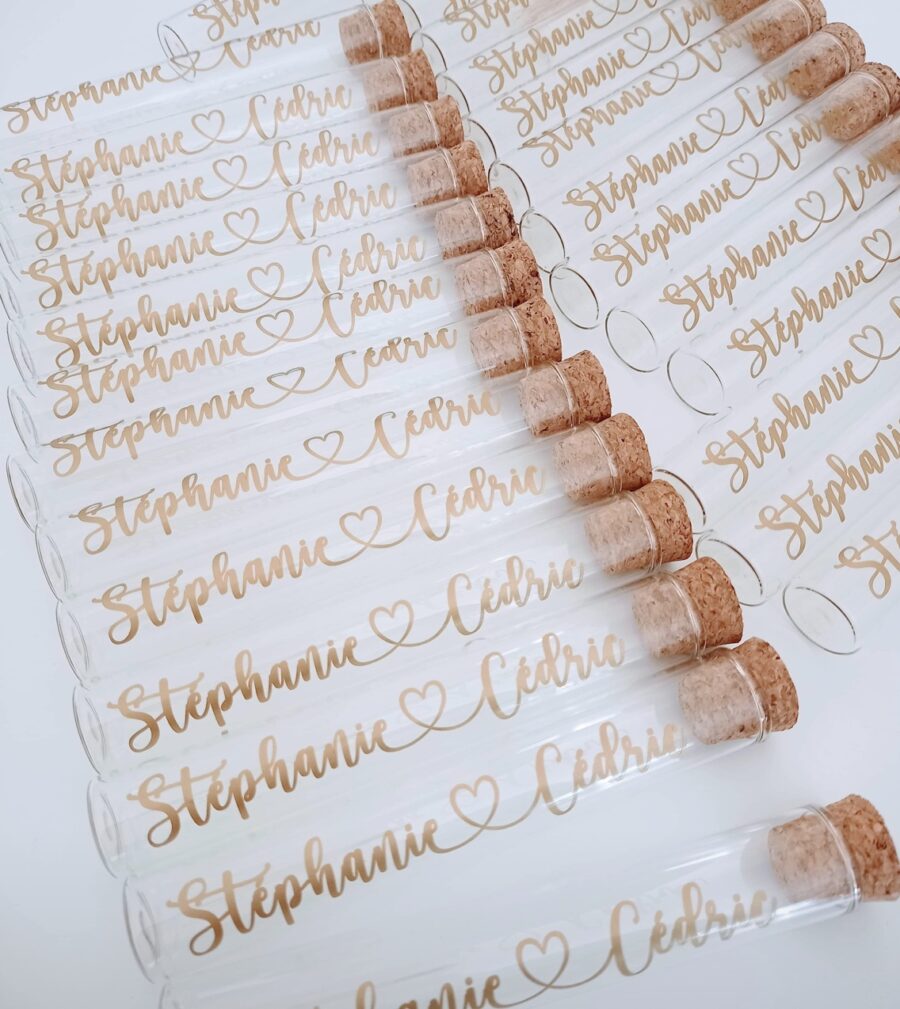 Stéph
Stéphanie Cédric
Stéphanie Cédric
Stéphanie Cédric
Stéphanie Cédric
Stéphanie Cédric
Stéphanie Cédric
Stéphanie Cédric
Stéphanie Cédric
Stéphanie Cédric
Stéphanie Cédric
Stéphanie Cédric
Stéphanie Cédric
phanie Cédric
Stéphanie
Stéphanie
Stéphanie
Stéphanie
Stéphanie Céd
Stéphanie Céd
Stéphanie Céd
Stéphanie
Stéphanie
Stéphani
Sté